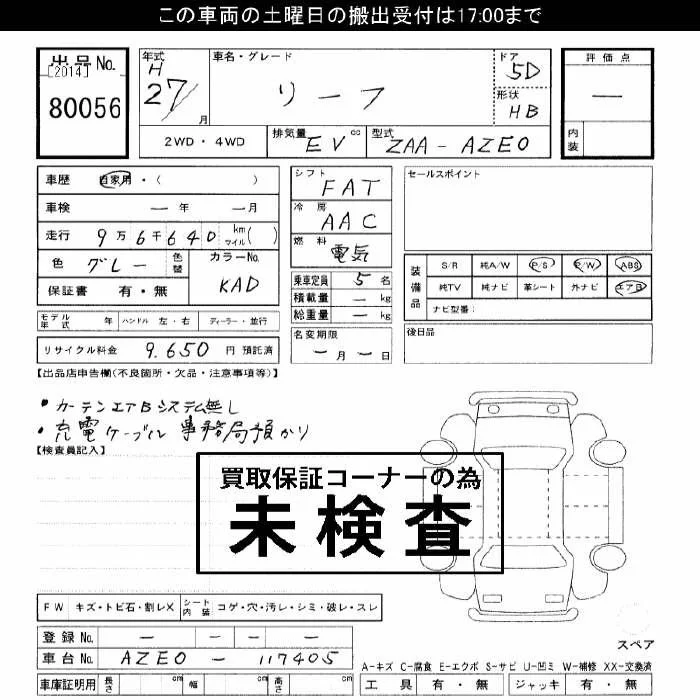 この車両の土曜日の搬出受付は17:00まで
出品No.
[2014]
80056
年式
H
27/
月
車名・グレード
リーフ
ドア
5D
形状
HB
評価点
—
内装
2WD・4WD
排気量
EV cc
型式
ZAA-AZE0
車歴 自家用・( )
車検 — 年 — 月
走行 9万6千640 km マイル( )
色 グレー 色替
カラーNo.
KAD
保証書 有・無
シフト
FAT
冷房
AAC
燃料
電気
乗車定員 5 名
積載量 — kg
総重量 — kg
セールスポイント
装備品
S/R 純A/W P/S P/W ABS
純TV 純ナビ 革シート 外ナビ エアB
ナビ型番:
モデル年式 年 ハンドル 左・右 ディーラー・並行
名変期限
— 月 — 日
後日品
リサイクル料金 9,650 円 預託済
【出品店申告欄(不良箇所・欠品・注意事項等)】
・カーテンエアBシステム無し
・充電ケーブル 事務局預かり
【検査員記入】
買取保証コーナーの為
未検査
FW キズ・トビ石・割レX シート内装 コゲ・穴・汚レ・シミ・破レ・スレ
登録No. — — —
車台No. AZE0 - 117405
車庫証明用 長さ cm 幅 cm 高さ cm
スペア
A-キズ C-腐食 E-エクボ S-サビ U-凹ミ W-補修 XX-交換済
工具 有・無 ジャッキ 有・無